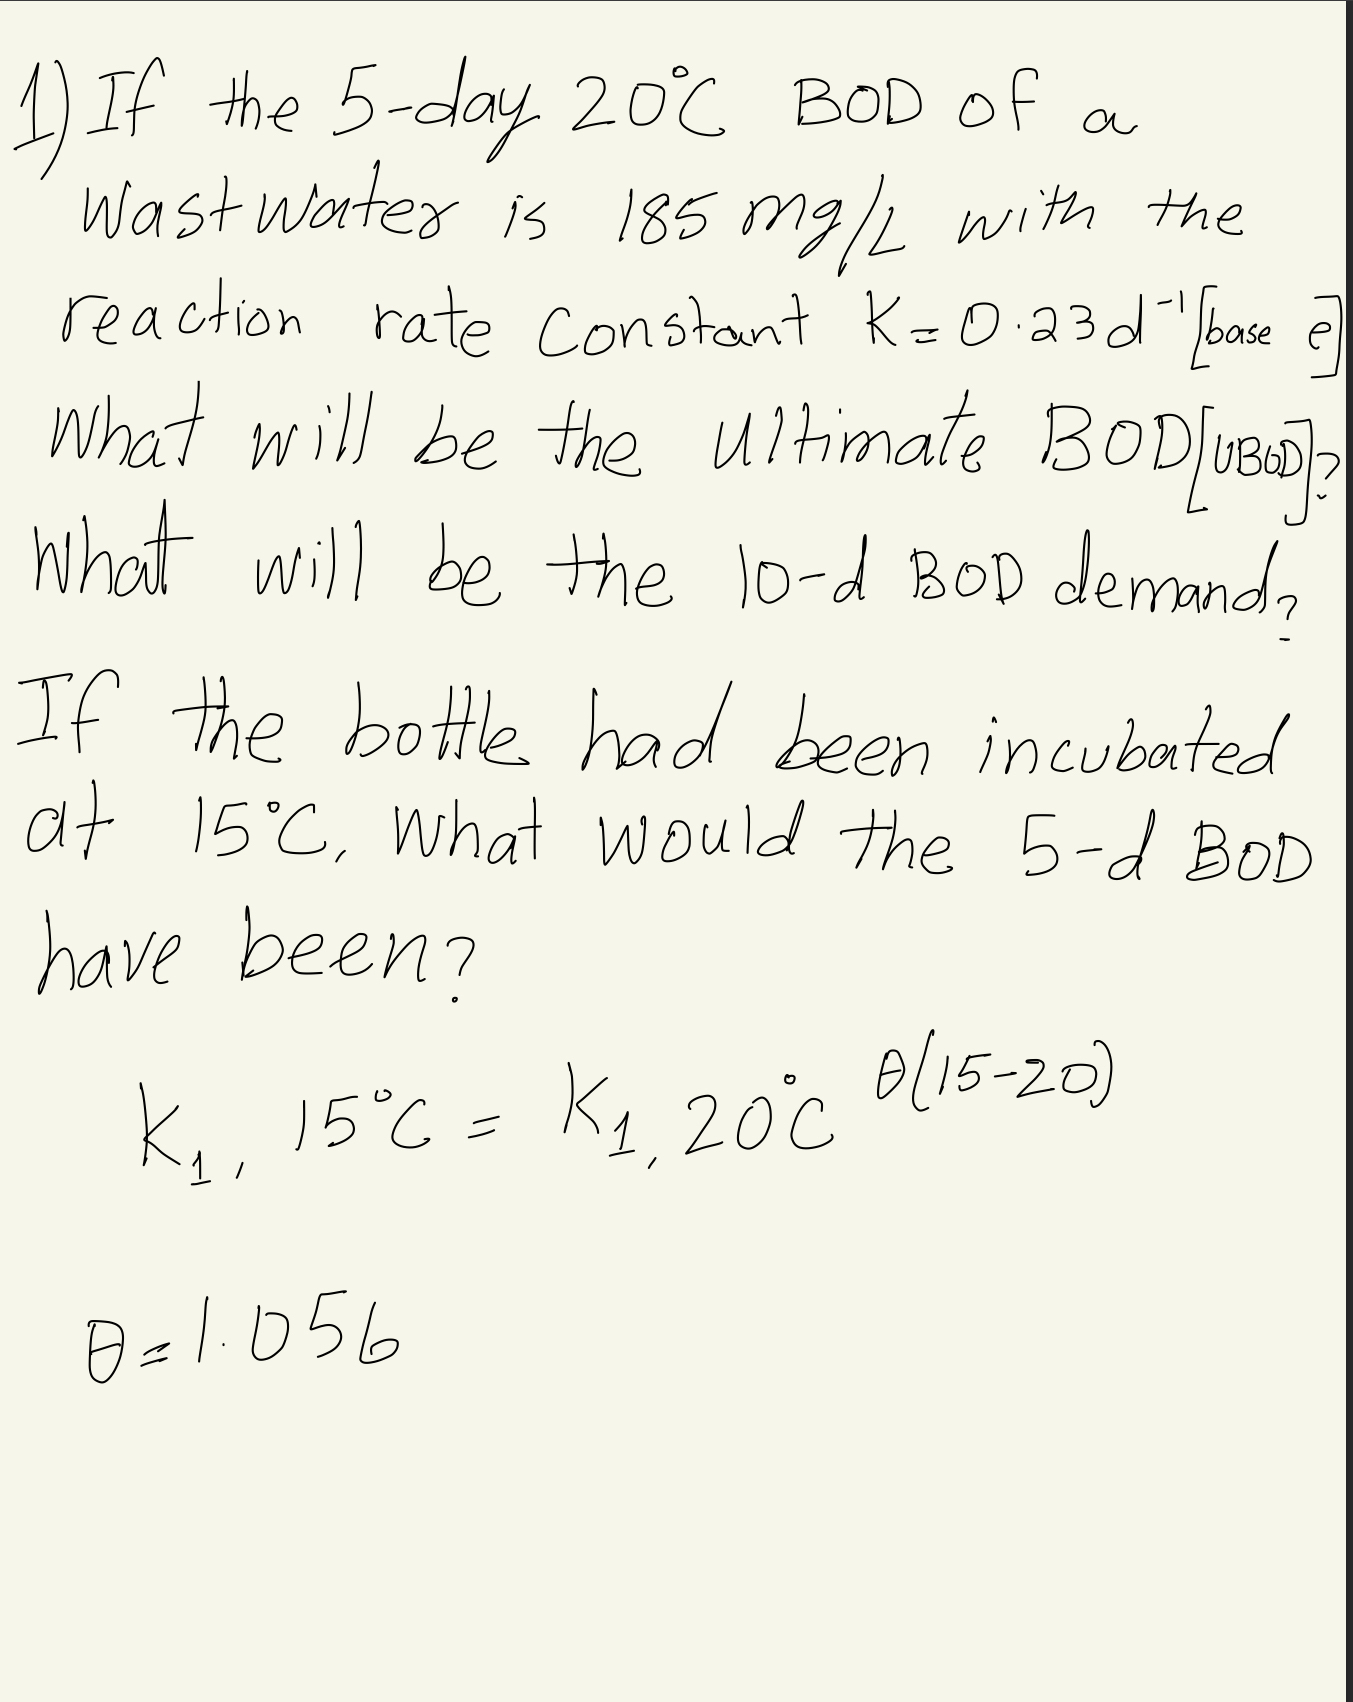 1) If the 5-day 20°C BOD of a
Wastwater is 185 mg/L with the
reaction rate constant K = 0.23 d⁻¹ [base e]
What will be the ultimate BOD [UBOD]?
What will be the 10-d BOD demand?
If the bottle had been incubated
at 15°C, What would the 5-d BOD
have been?
K₁, 15°C = K₁, 20°C θ(15-20)
θ = 1.056